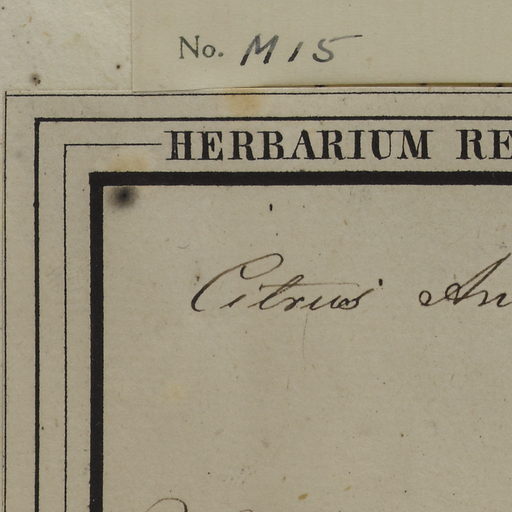 No. M15
HERBARIUM RE
Citrus An